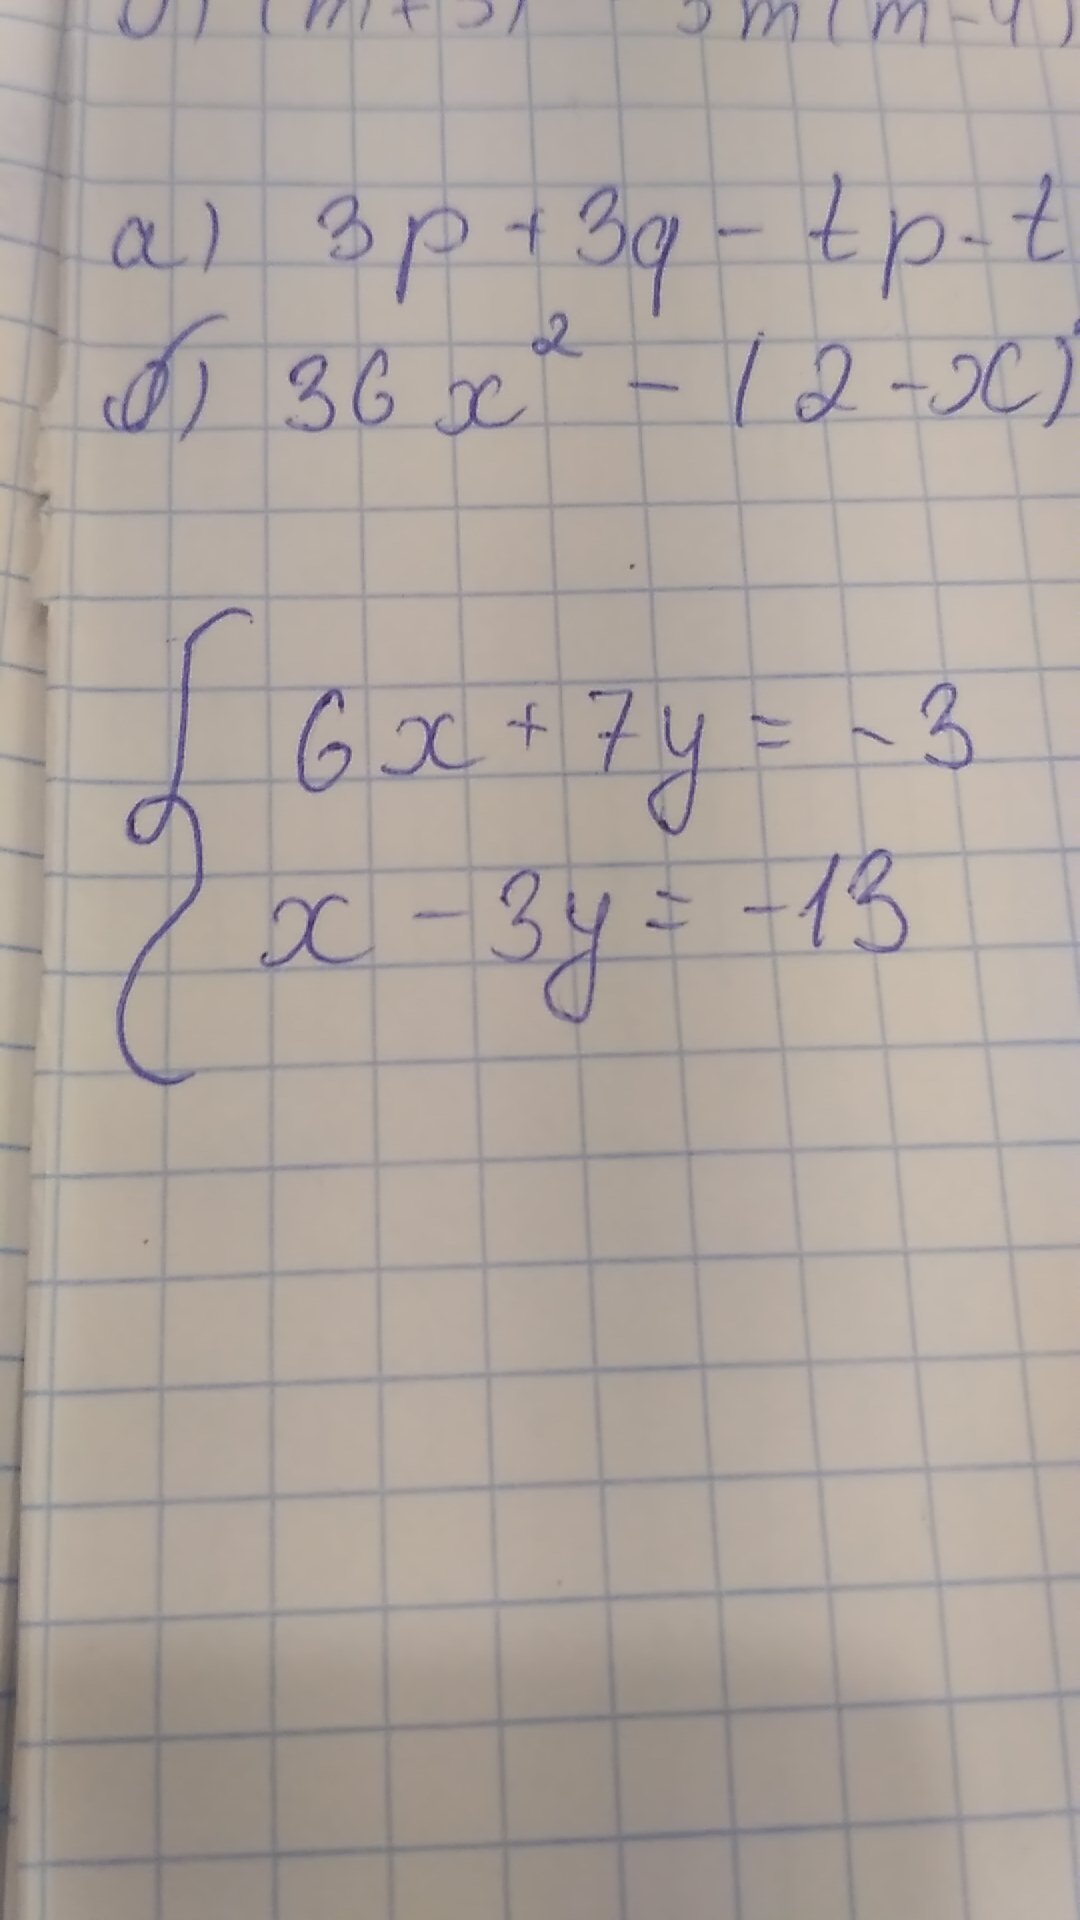 (m+5) 3m(m-4)
а) 3p+3q-tp-t
б) 36x²-(2-x)
6x+7y=-3
x-3y=-13